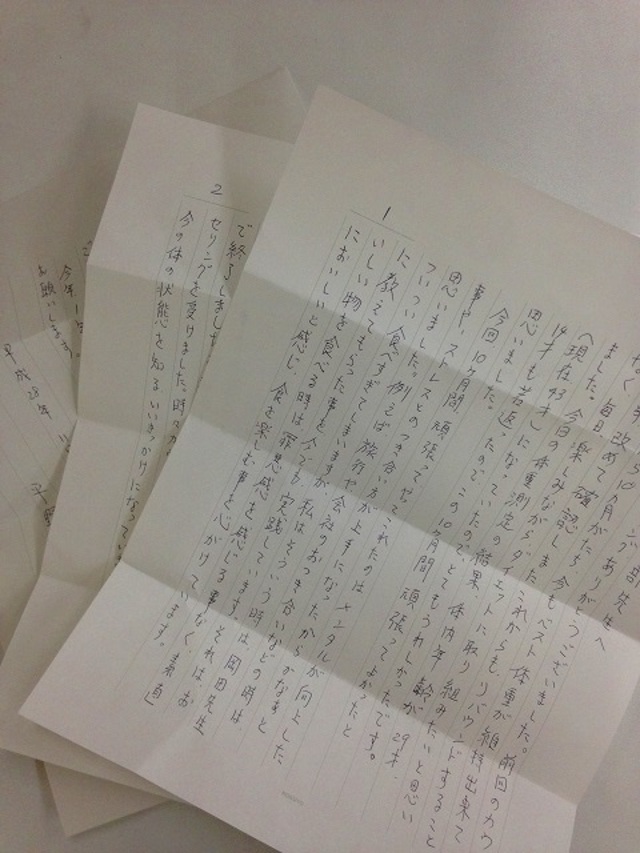 先生へ
ありがとうございました。前回のカウ
ら10ヵ月がたち、今もベスト体重が維持出来て
なく、毎日改めて確認しました。これからもリバウンドすること
ました。今日の楽しみながらダイエットに取り組みたいと思い
(現在43才)体重測定の結果、体内年齢が29才、
14才も若返っていたのでとてもうれしかったです。
この10ヶ月間頑張ってよかったと
思いました。
今回10ヶ月間頑張ってやってこれたのはメンタルが向上した
事や、ストレスとのつき合い方が上手になったからかなぁと
思いました。例えば旅行や会社のおつき合いなどの時は、
ついつい食べすぎてしまいますが、私はそういう時は、岡田先生
に教えてもらった事を今でも実践しています。それは、お
いしい物を食べる時は罪悪感を感じる事なく、素直
においしいと感じ、食を楽しむ事を心がけています。
1
2
で終了しました
セリングを受けました。時々
今の体の状態を知るいいきっかけになってい
今年1年
お願いします。
平成28年